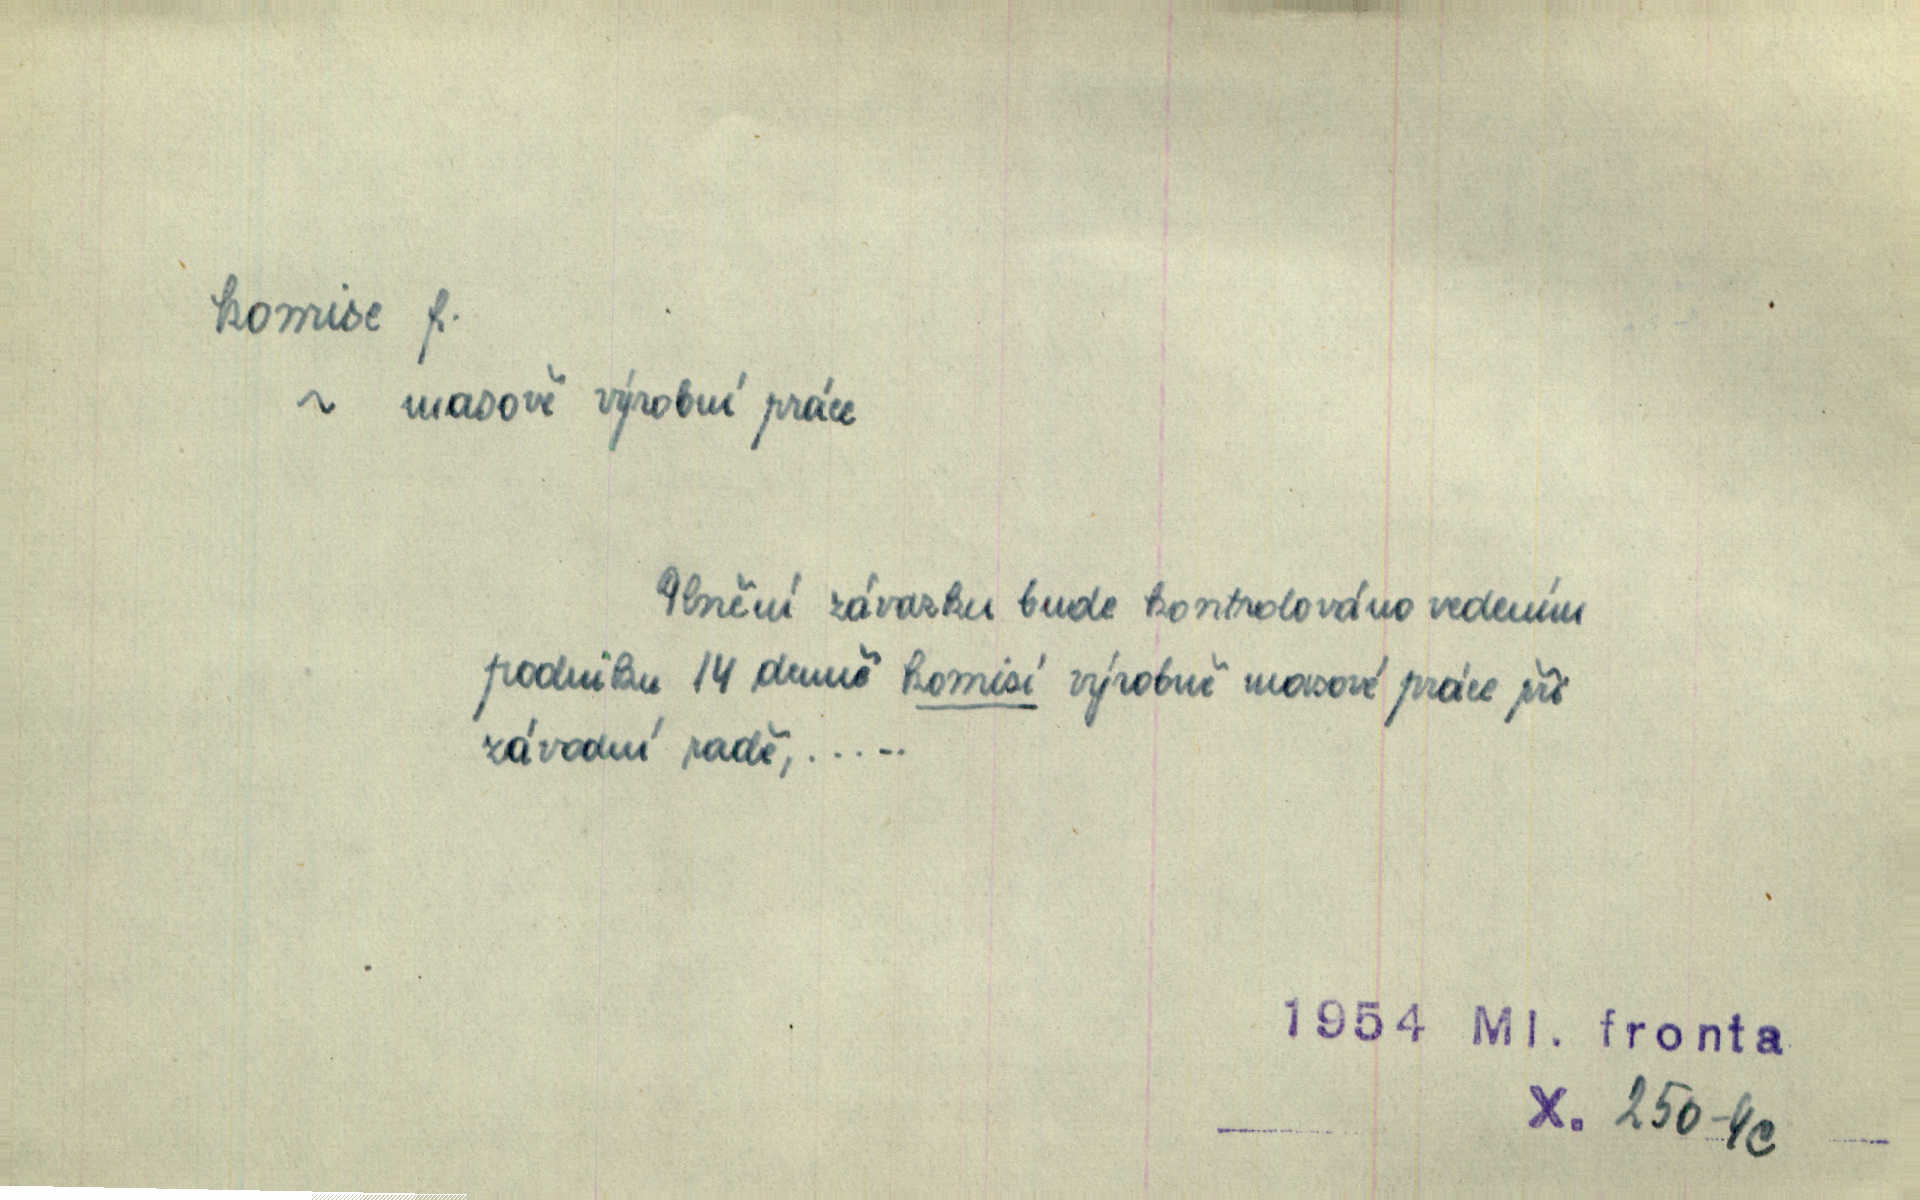 komise f.
~ masově výrobní práce
Plnění závazku bude kontrolováno vedením
podniku 14 denně komisí výrobně masové práce při
závodní radě, . . . - ..
1954 Ml. fronta
X. 250-4c